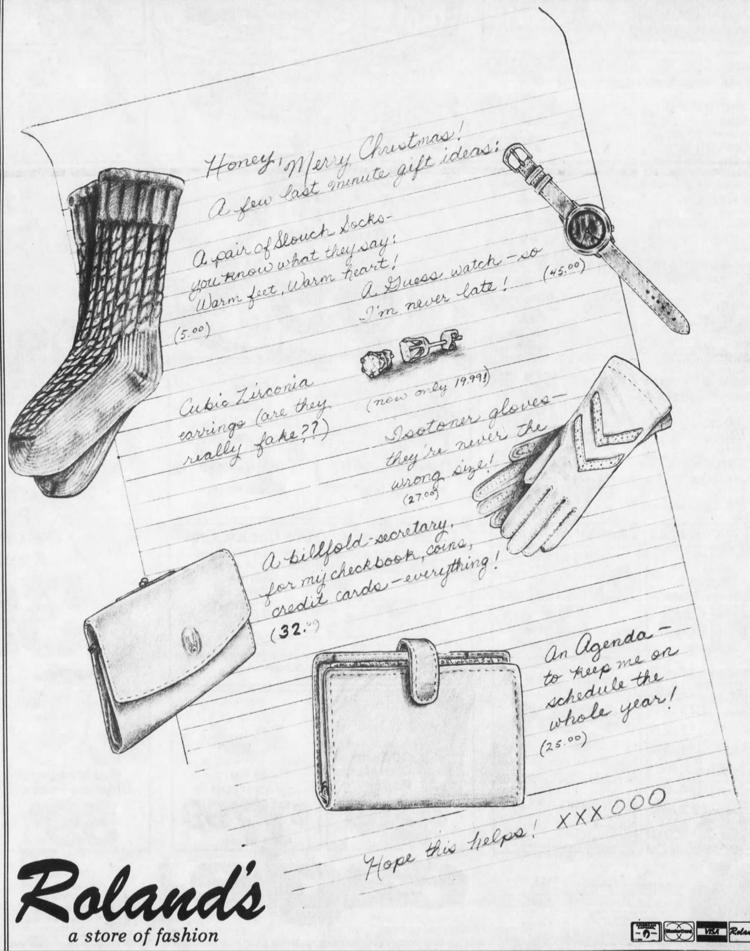 Honey, Merry Christmas!
A few last minute gift ideas:
A pair of Slouch Socks-
you know what they say:
Warm feet, Warm heart!
(5.00)
A Guess watch - so
I'm never late!
(45.00)
Cubic Zirconia
earrings (are they
really fake??)
(now only 19.99!)
Isotoner gloves-
they're never the
wrong size!
(27.00)
A billfold-secretary,
for my checkbook, coins,
credit cards - everything!
(32.00)
An Agenda -
to keep me on
schedule the
whole year!
(25.00)
Hope this helps! XXXOOO
Roland's
a store of fashion
VISA